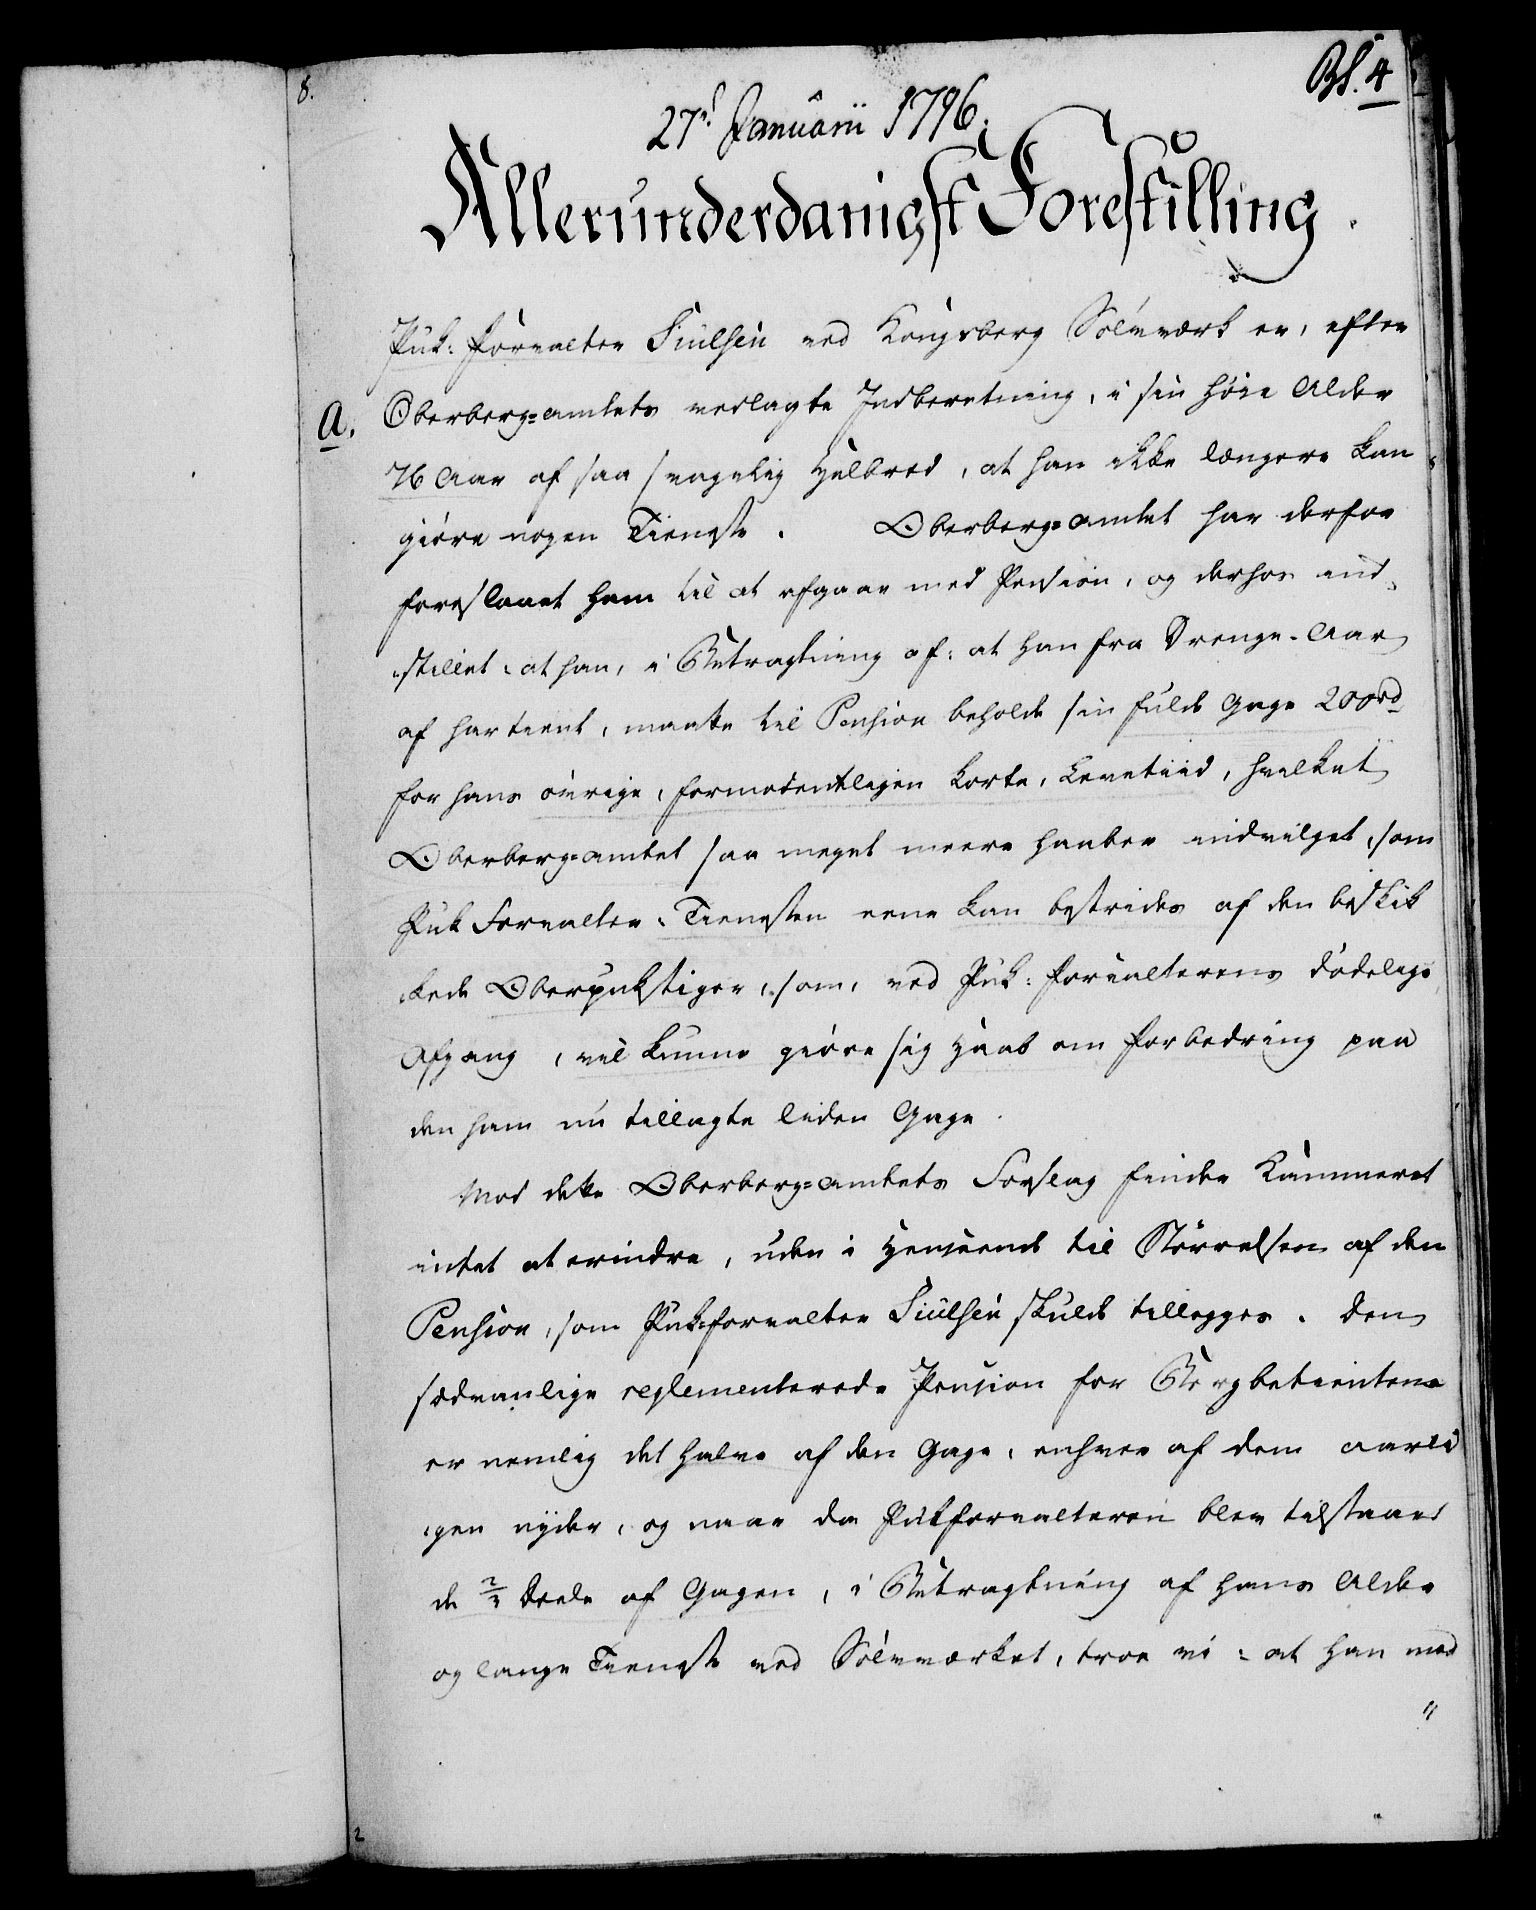 8.
Bl. 4
27d Januarii 1796.
Allerunderdanigst Forestilling.
Puk-forvalter Siulsen ved Kongsberg Sølvværk er, efter
A. Oberberg=amtets vedlagte Indberetning, i sin høie Alder
76 Aar af saa svagelig Helbred, at han ikke længere kan
giøre nogen Tieneste. Oberberg=amtet har derfor
foreslaaet ham til at afgaae med Pension, og derhos ind-
stillet: at han, i Betragtning af: at han fra Drenge-Aar
af har tient, maatte til Pension beholde sin fulde Gage 200rd
for hans øvrige, formodentligen korte, Levetiid, hvilket
Oberberg=amtet saa meget meere haaber indvilget, som
Puk Forvalter-Tienesten eene kan bestrides af den beskik
kede Oberpukstiger, som, ved Puk-forvalterens dødelige
Afgang, vil kunne giøre sig Haab om Forbedring paa
den ham nu tillagte liden Gage.
Mod dette Oberberg=amtets Forslag finder Kammeret
intet at erindre, uden i Henseende til Størrelsen af den
Pension, som Pukforvalter Siulsen skulde tillegges. Den
sædvanlige reglementerede Pension for Bergbetientere
er nemlig det halve af den Gage, enhver af dem aarli
gen nyder, og naar da Pukforvalteren blev tilstaaet
de 2/3 Deele af Gagen, i Betragtning af hans Alder
og lange Tieneste ved Sølvværket, troe vi: at han med
2